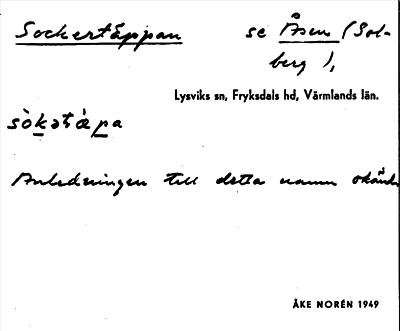 Sockertäppan se Åsen (Sol-
berg),
Lysviks sn, Fryksdals hd, Värmlands län.
sòkətä̀pa
Anledningen till detta namn okänd
ÅKE NORÉN 1949